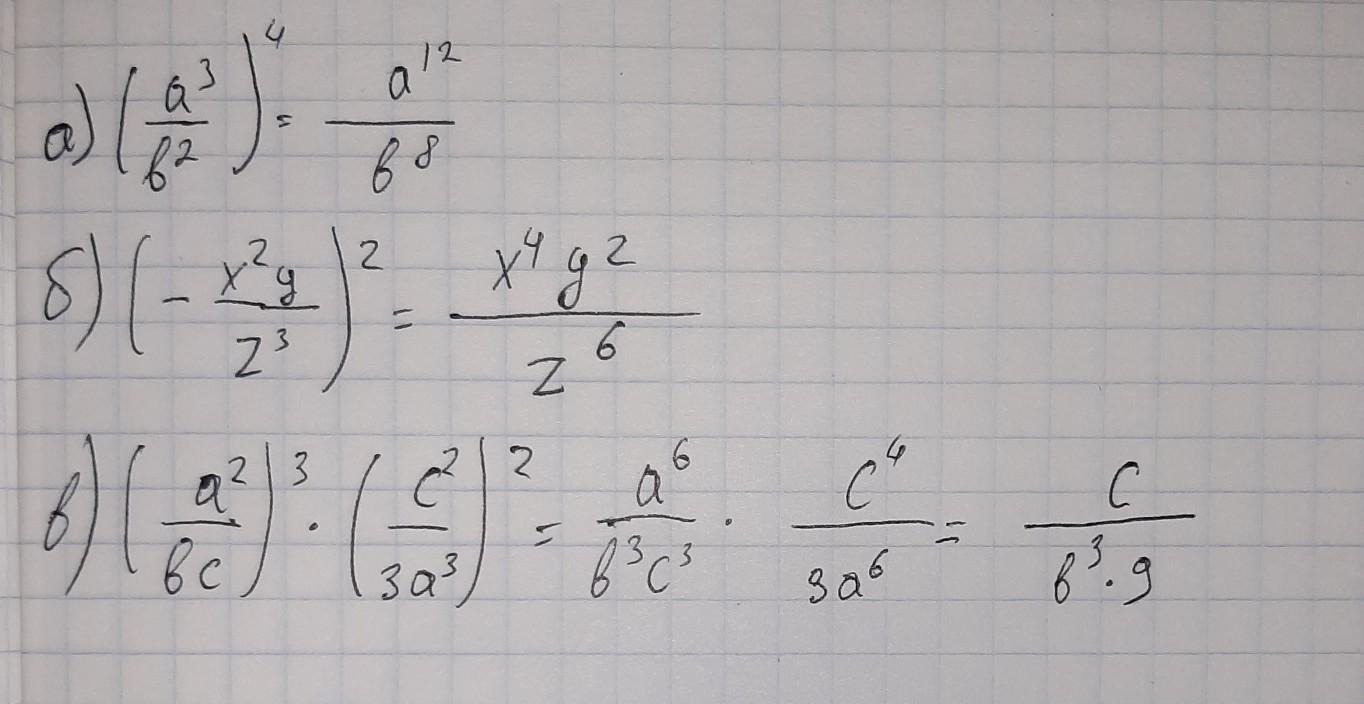 а) (a³/b²)⁴ = a¹²/b⁸
б) (- x²y/z³)² = x⁴y²/z⁶
в) (a²/bc)³ · (c²/3a³)² = a⁶/b³c³ · c⁴/9a⁶ = c/b³·9